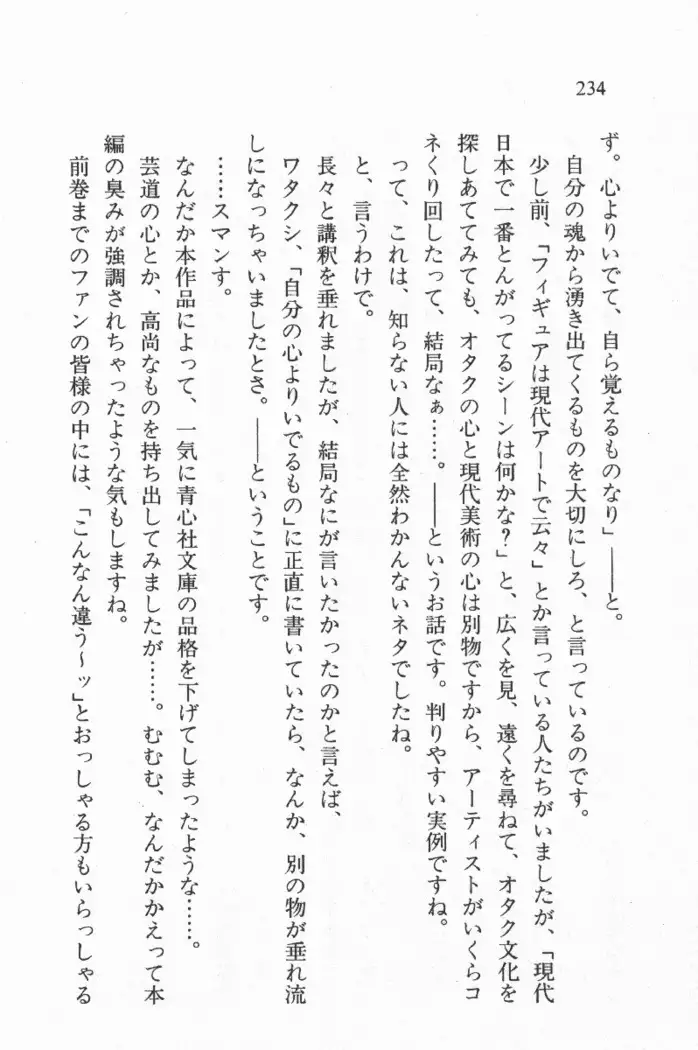 234
ず。心よりいでて、自ら覚えるものなり」――と。
自分の魂から湧き出てくるものを大切にしろ、と言っているのです。
少し前、「フィギュアは現代アートで云々」とか言っている人たちがいましたが、「現代
日本で一番とんがってるシーンは何かな?」と、広くを見、遠くを尋ねて、オタク文化を
探しあててみても、オタクの心と現代美術の心は別物ですから、アーティストがいくらコ
ネくり回したって、結局なぁ……。――というお話です。判りやすい実例ですね。
って、これは、知らない人には全然わかんないネタでしたね。
と、言うわけで。
長々と講釈を垂れましたが、結局なにが言いたかったのかと言えば、
ワタクシ、「自分の心よりいでるもの」に正直に書いていたら、なんか、別の物が垂れ流
しになっちゃいましたとさ。――ということです。
……スマンす。
なんだか本作品によって、一気に青心社文庫の品格を下げてしまったような……。
芸道の心とか、高尚なものを持ち出してみましたが……。むむむ、なんだかかえって本
編の臭みが強調されちゃったような気もしますね。
前巻までのファンの皆様の中には、「こんなん違う～ッ」とおっしゃる方もいらっしゃる